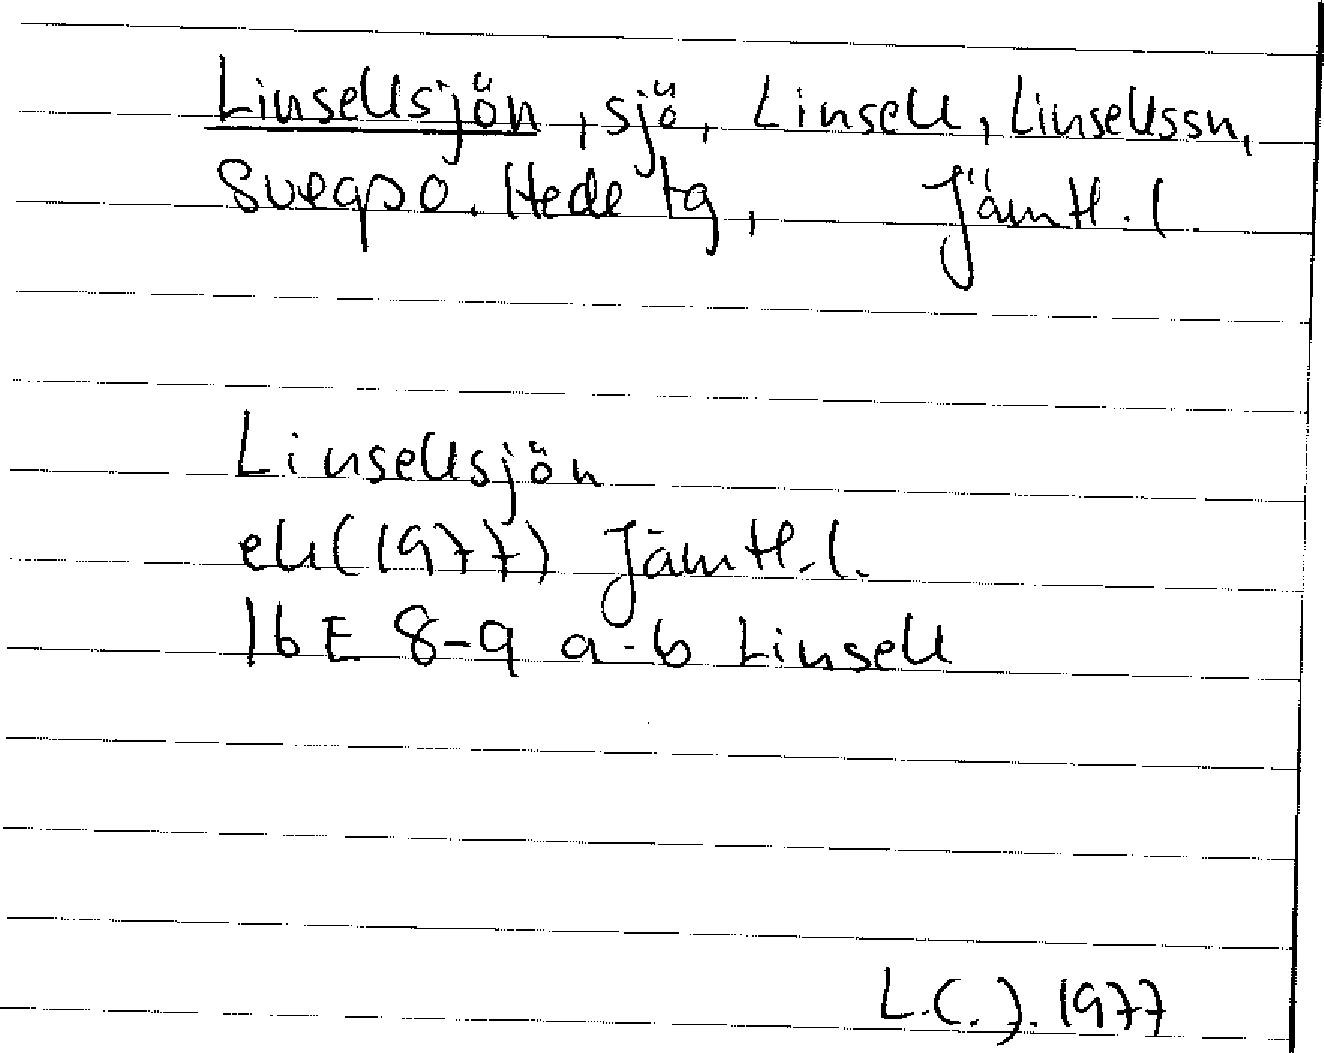 Linsellsjön, sjö, Linsell, Linsellssn,
Svegs o. Hede tg, Jämtl. l.
Linsellsjön
ek (1977) Jämtl. l.
16 E 8-9 a-b Linsell
L.C.J. 1977